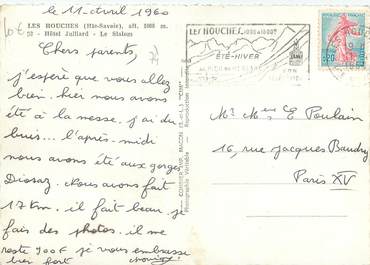 le 11 avril 1960
LES HOUCHES (Hte-Savoie), alt. 1008 m.
52 - Hôtel Julliard - Le Slalom
Chers parents,
j'espère que vous allez
bien. hier nous avons
été a la messe. j'ai du
buis... l'après-midi
nous avons été aux gorges
Diosaz. Nous avons fait
17 Km. il fait beau. je
fais des photos. il me
reste 900F je vous embrasse
bien fort
LES HOUCHES
ÉTÉ-HIVER
0,20
Mr Mme E Poulain
16, rue Jacques Baudry
Paris XV
Photographie Véritable - Reproduction interdite